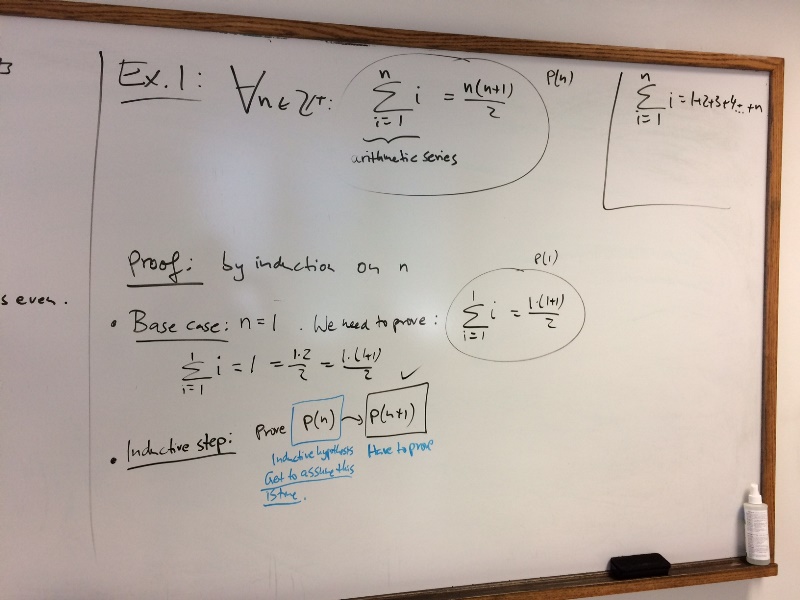 Ex.1: ∀n∈ℤ⁺: ∑_{i=1}^{n} i = n(n+1)/2 P(n)
arithmetic series
∑_{i=1}^{n} i = 1+2+3+4+...+n
Proof: by induction on n
s even.
• Base case: n=1. We need to prove: ∑_{i=1}^{1} i = 1·(1+1)/2 P(1)
∑_{i=1}^{1} i = 1 = 1·2/2 = 1·(1+1)/2 ✓
• Inductive step: Prove P(n) → P(n+1)
Inductive hypothesis
Get to assume this
is true.
Have to prove